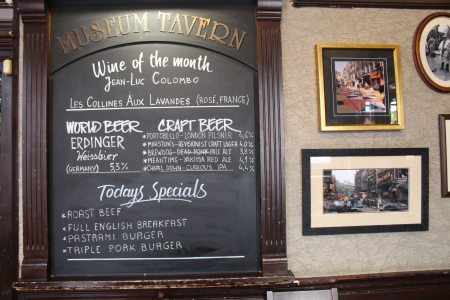 MUSEUM TAVERN
Wine of the month
JEAN-LUC COLOMBO
LES COLLINES AUX LAVANDES (ROSÉ, FRANCE)
WORLD BEER
ERDINGER
Weissbier
(GERMANY) 5,3%
CRAFT BEER
*PORTOBELLO-LONDON PILSNER 4,6%
*MARSTON'S-REVISIONIST CRAFT LAGER 4,0%
*BREWDOG-DEAD PONY PALE ALE 3,8%
*MEANTIME-YAKIMA RED ALE 4,1%
*CHAPEL DOWN-CURIOUS IPA 4,4%
Todays Specials
*ROAST BEEF
*FULL ENGLISH BREAKFAST
*PASTRAMI BURGER
*TRIPLE PORK BURGER